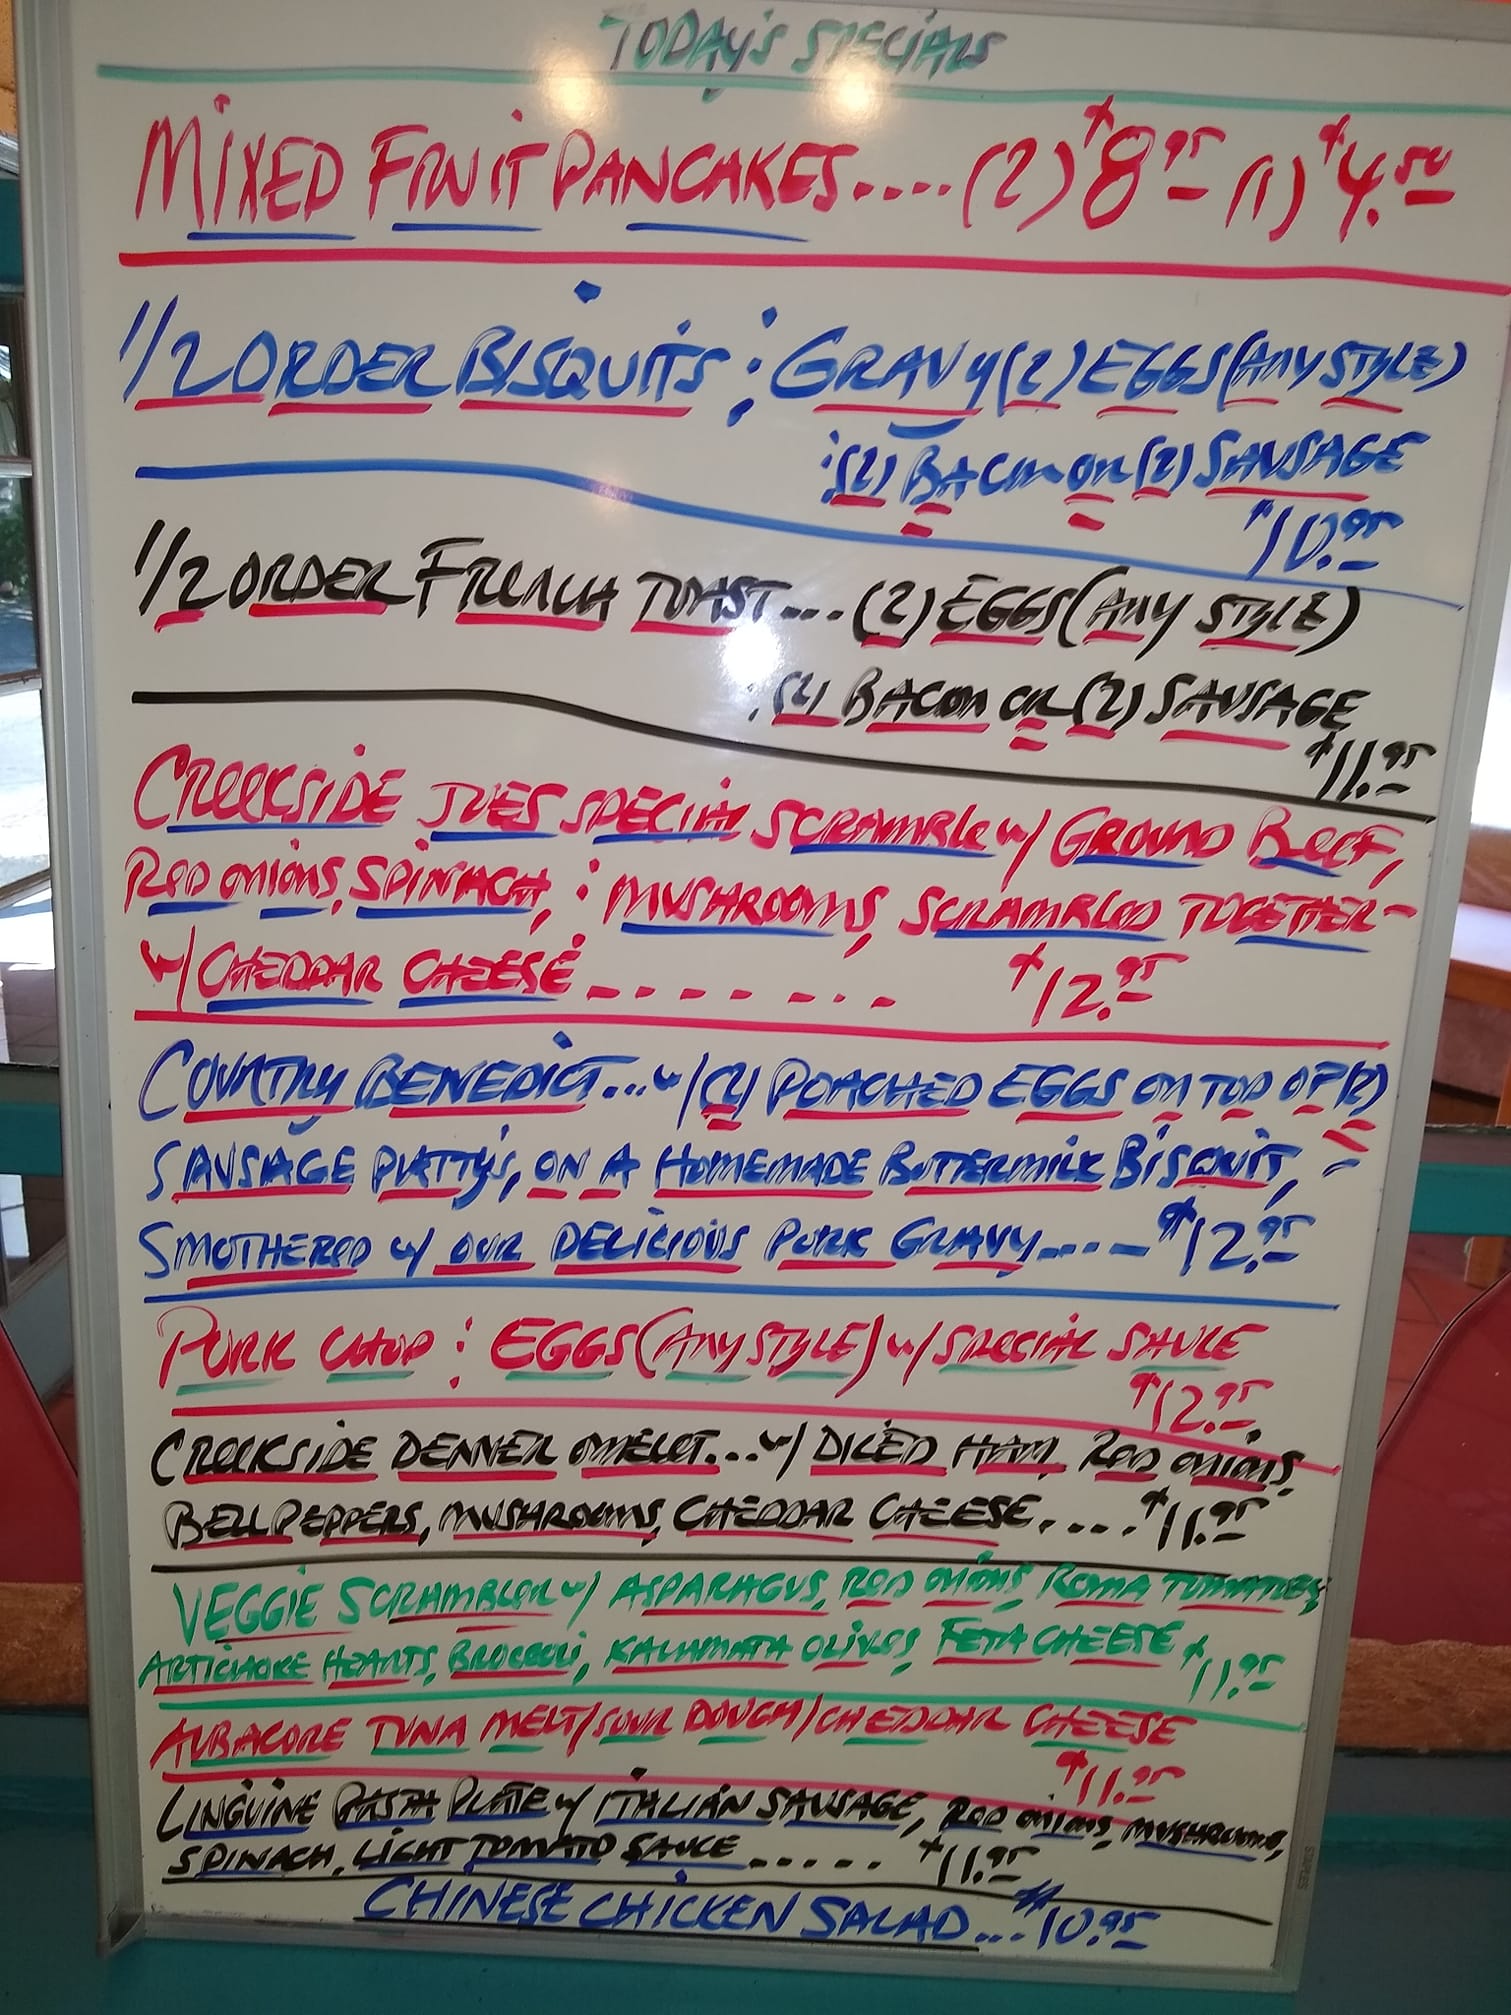 TODAY'S SPECIALS
MIXED FRUIT PANCAKES.... (2) $8.95 (1) $4.50
1/2 ORDER BISQUITS ; GRAVY (2) EGGS (ANY STYLE)
: (2) BACON OR (2) SAUSAGE
$10.95
1/2 ORDER FRENCH TOAST... (2) EGGS (ANY STYLE)
: (2) BACON OR (2) SAUSAGE
$11.95
CREEKSIDE JOES SPECIAL SCRAMBLE W/ GROUND BEEF,
RED ONIONS, SPINACH, : MUSHROOMS, SCRAMBLED TOGETHER-
W/ CHEDDAR CHEESE........ $12.95
COUNTRY BENEDICT... W/ (2) POACHED EGGS ON TOP OF (2)
SAUSAGE PATTY'S, ON A HOMEMADE BUTTERMILK BISQUIT,
SMOTHERED W/ OUR DELICIOUS PORK GRAVY.... $12.95
PORK CHOP : EGGS (ANY STYLE) W/ SPECIAL SAUCE
$12.95
CREEKSIDE DENVER OMELET... W/ DICED HAM, RED ONIONS,
BELL PEPPERS, MUSHROOMS, CHEDDAR CHEESE..... $11.95
VEGGIE SCRAMBLER W/ ASPARAGUS, RED ONIONS, ROMA TOMATOES,
ARTICHOKE HEARTS, BROCCOLI, KALAMATA OLIVES, FETA CHEESE $11.95
ALBACORE TUNA MELT/SOUR DOUGH/CHEDDAR CHEESE
$11.95
LINGUINE PASTA PLATE W/ ITALIAN SAUSAGE, RED ONIONS, MUSHROOMS,
SPINACH, LIGHT TOMATO SAUCE ..... $11.95
CHINESE CHICKEN SALAD... $10.95
STAPLES